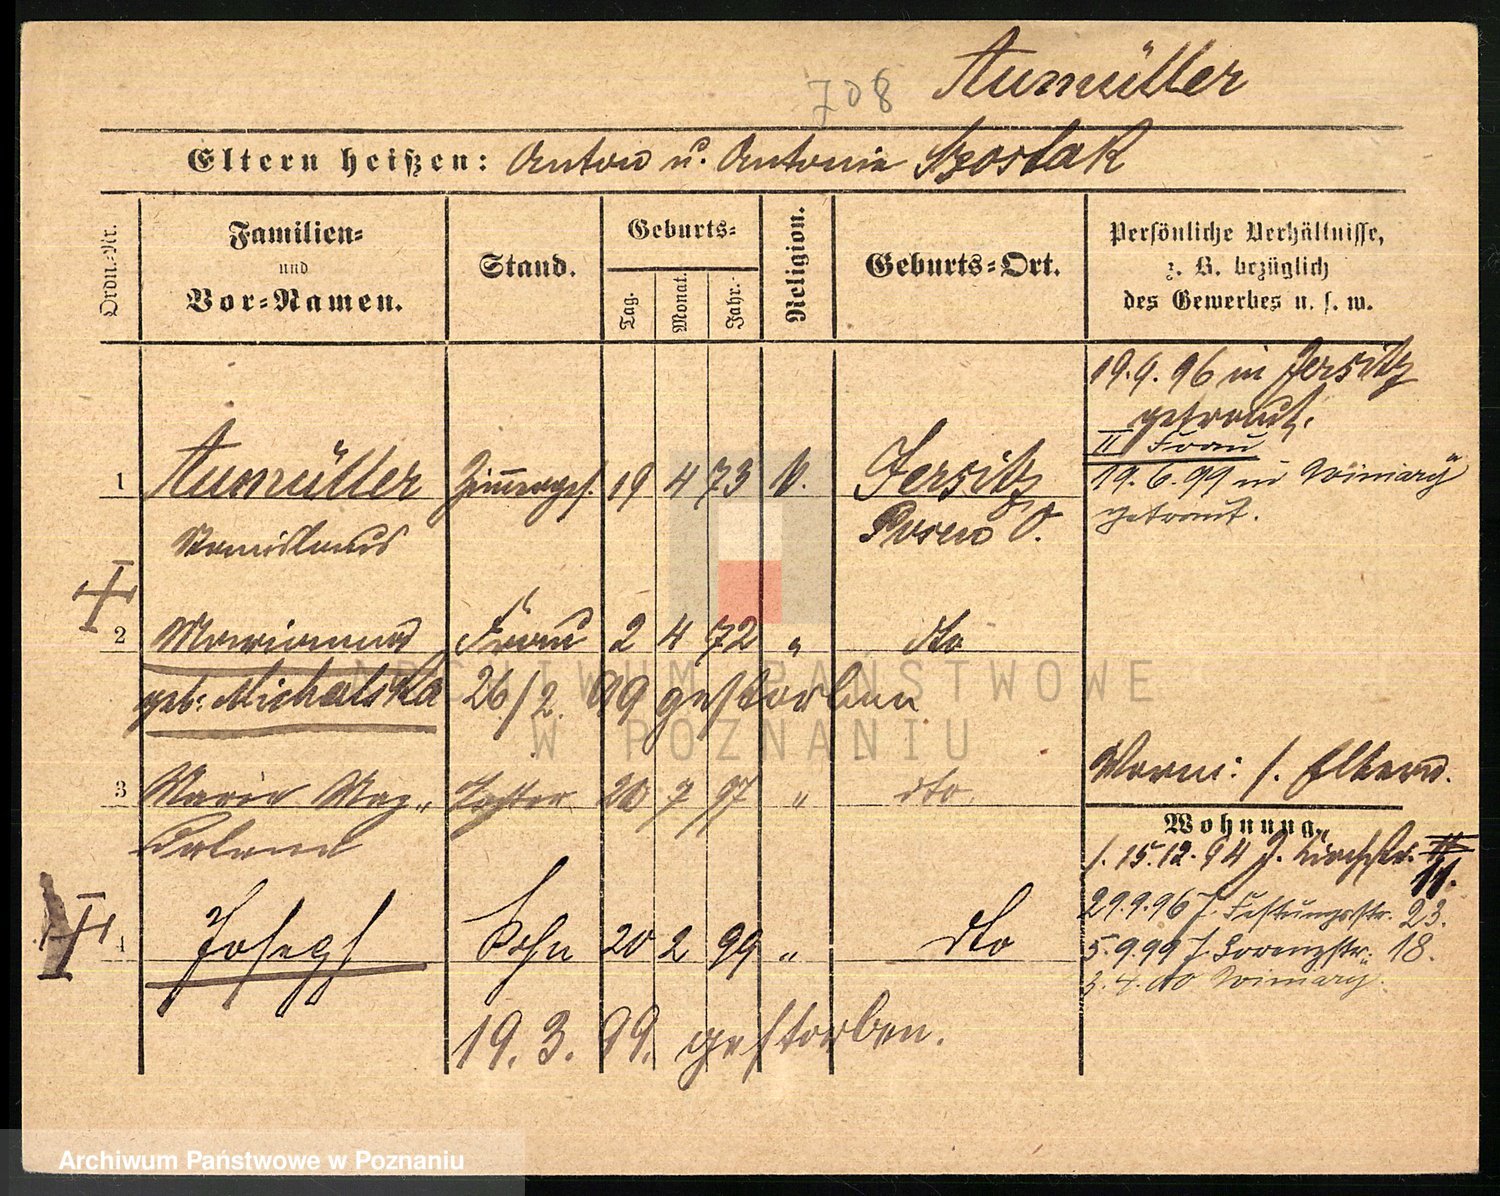 708 Aumüller
Eltern heißen: Anton u. Antonie Szostak
Ordn.-Nr.
Familien-
und
Vor-Namen.
Stand.
Geburts-
Tag.
Monat.
Jahr.
Religion.
Geburts-Ort.
Persönliche Verhältnisse,
z. B. bezüglich
des Gewerbes u. s. w.
19.9.96 in Jersitz
getraut.
II Frau
1 Aumüller Zimmerges. 19 4 73 k. Jersitz
19.6.99 in Winiary
getraut.
Stanislaus Posen O.
2 Marianna Frau 2 4 72 " dto
geb. Michalska 26/2. 99 gestorben
3 Marie Mag- Tochter 20 7 97 " dto.
dalena
Vorm: s. Eltern.
Wohnung.
1. 15.12.94 J. Kirchstr. 11.
29.9.96 J. Festungsstr. 23.
5.9.99 J. Lorenzstr. 18.
3.4.00 Winiary.
4 Joseph Sohn 20 2 99 " dto
19.3.99. gestorben.
ARCHIWUM PAŃSTWOWE
W POZNANIU
Archiwum Państwowe w Poznaniu